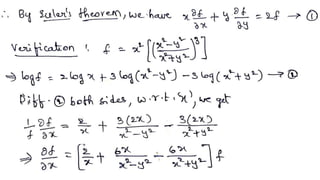 ∴ By Euler's theorem, we have x ∂f/∂x + y ∂f/∂y = 2f → ①
Verification : f = x² [(x²-y²/x²+y²)³]
⇒ logf = 2 log x + 3 log(x²-y²) - 3 log(x²+y²) → ②
Diff. ② both sides, w.r.t. 'x', we get
1/f ∂f/∂x = 2/x + 3(2x)/x²-y² - 3(2x)/x²+y²
⇒ ∂f/∂x = [2/x + 6x/x²-y² - 6x/x²+y²] f